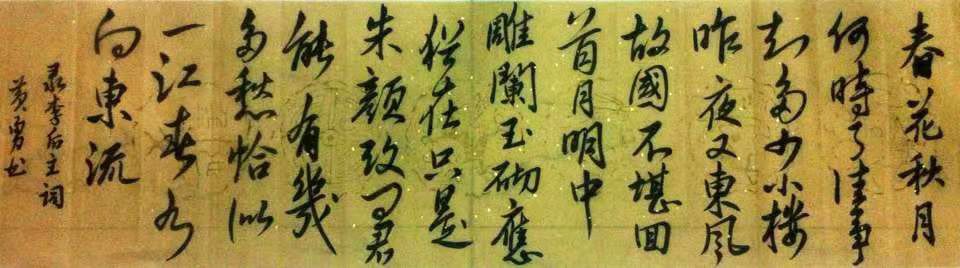 春花秋月
何時了往事
知多少小樓
昨夜又東風
故國不堪回
首月明中
雕闌玉砌應
猶在只是
朱顏改問君
能有幾
多愁恰似
一江春水
向東流
录李后主詞
黄勇书